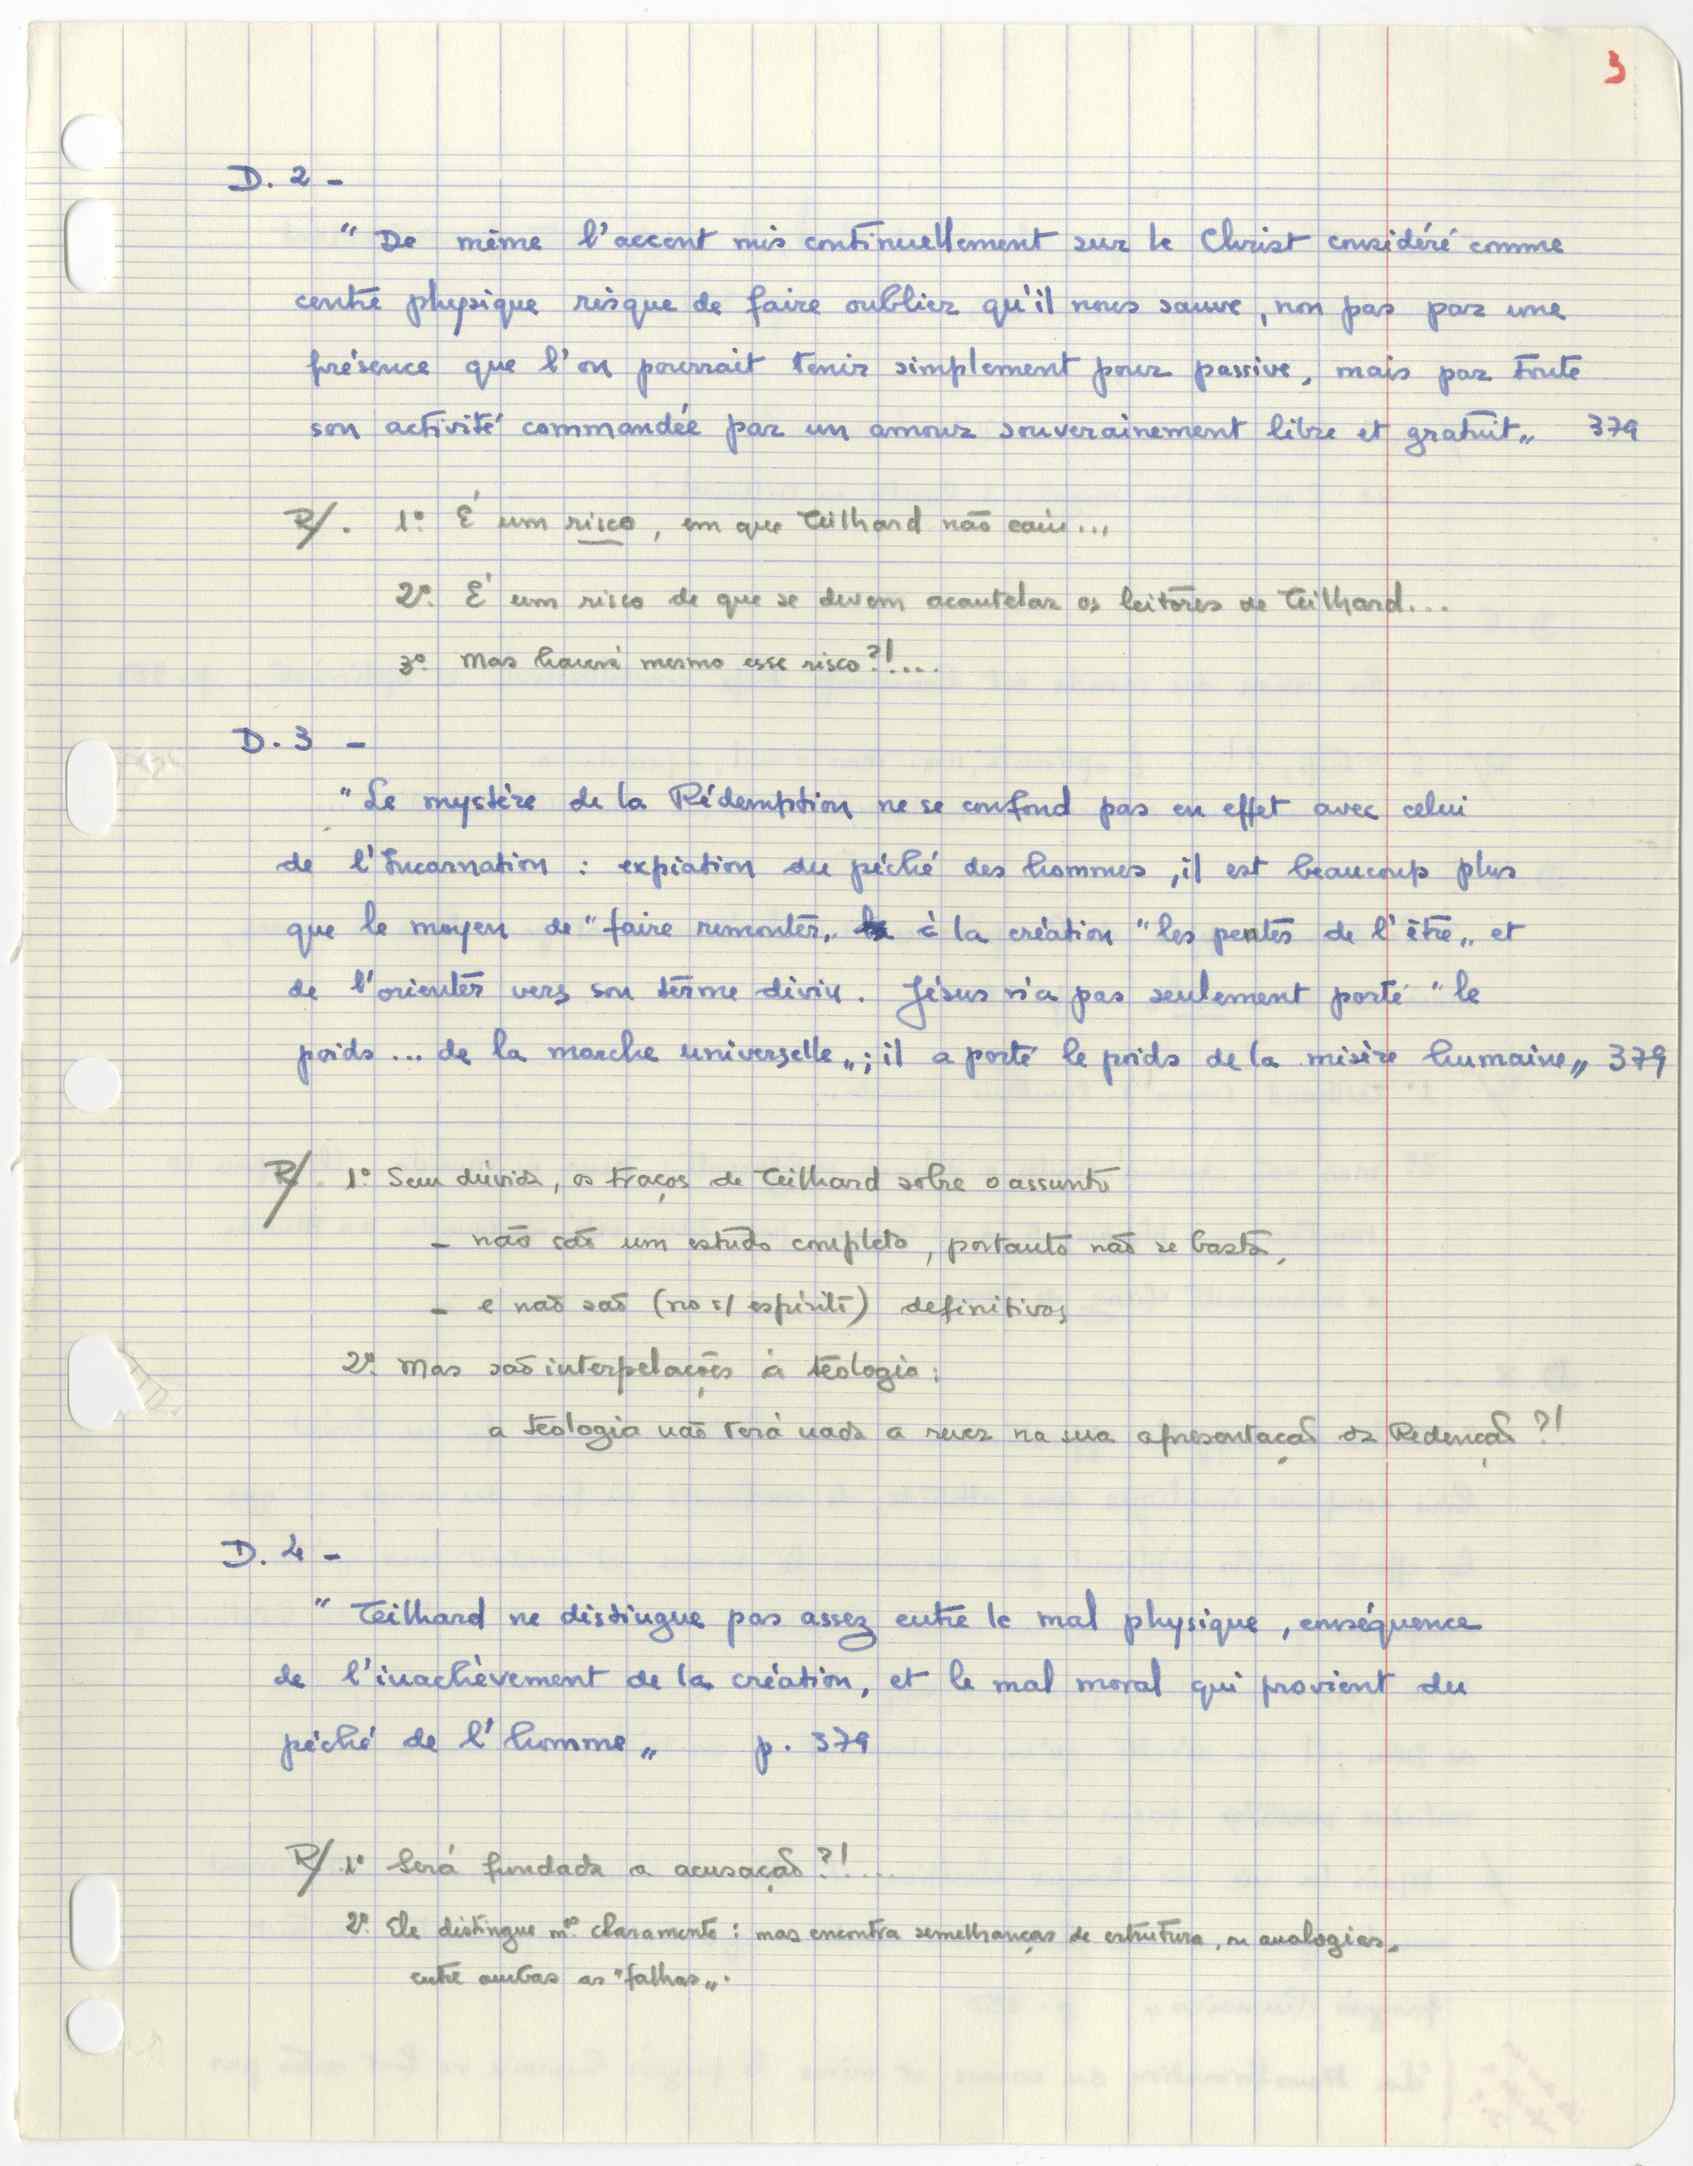 3
D. 2 -
" De même l'accent mis continuellement sur le Christ considéré comme
centre physique risque de faire oublier qu'il nous sauve, non pas par une
présence que l'on pourrait tenir simplement pour passive, mais par toute
son activité commandée par un amour souverainement libre et gratuit„ 379
R/. 1º É um risco, em que Teilhard não caiu...
2º. É um risco de que se devem acautelar os leitores de Teilhard...
3º. Mas haverá mesmo esse risco?!....
D. 3 -
"Le mystère de la Rédemption ne se confond pas en effet avec celui
de l'Incarnation : expiation du péché des hommes, il est beaucoup plus
que le moyen de "faire remonter„ à la création "les pentes de l'être„ et
de l'orienter vers son terme divin. Jésus n'a pas seulement porté "le
poids ... de la marche universelle„; il a porté le poids de la misère humaine„ 379
R/. 1º Sem dúvida, os traços de Teilhard sobre o assunto
- não são um estudo completo, portanto não se basta,
- e não são (no s/ espírito) definitivos
2º. Mas são interpelações à teologia:
a teologia não terá nada a rever na sua apresentação da Redenção ?!
D. 4 -
" Teilhard ne distingue pas assez entre le mal physique, conséquence
de l'inachèvement de la création, et le mal moral qui provient du
péché de l'homme„ p. 379
R/ 1º Será fundada a acusação ?!....
2º. Ele distingue mº. claramente : mas encontra semelhanças de estrutura, ou analogias,
entre ambas as "falhas„.